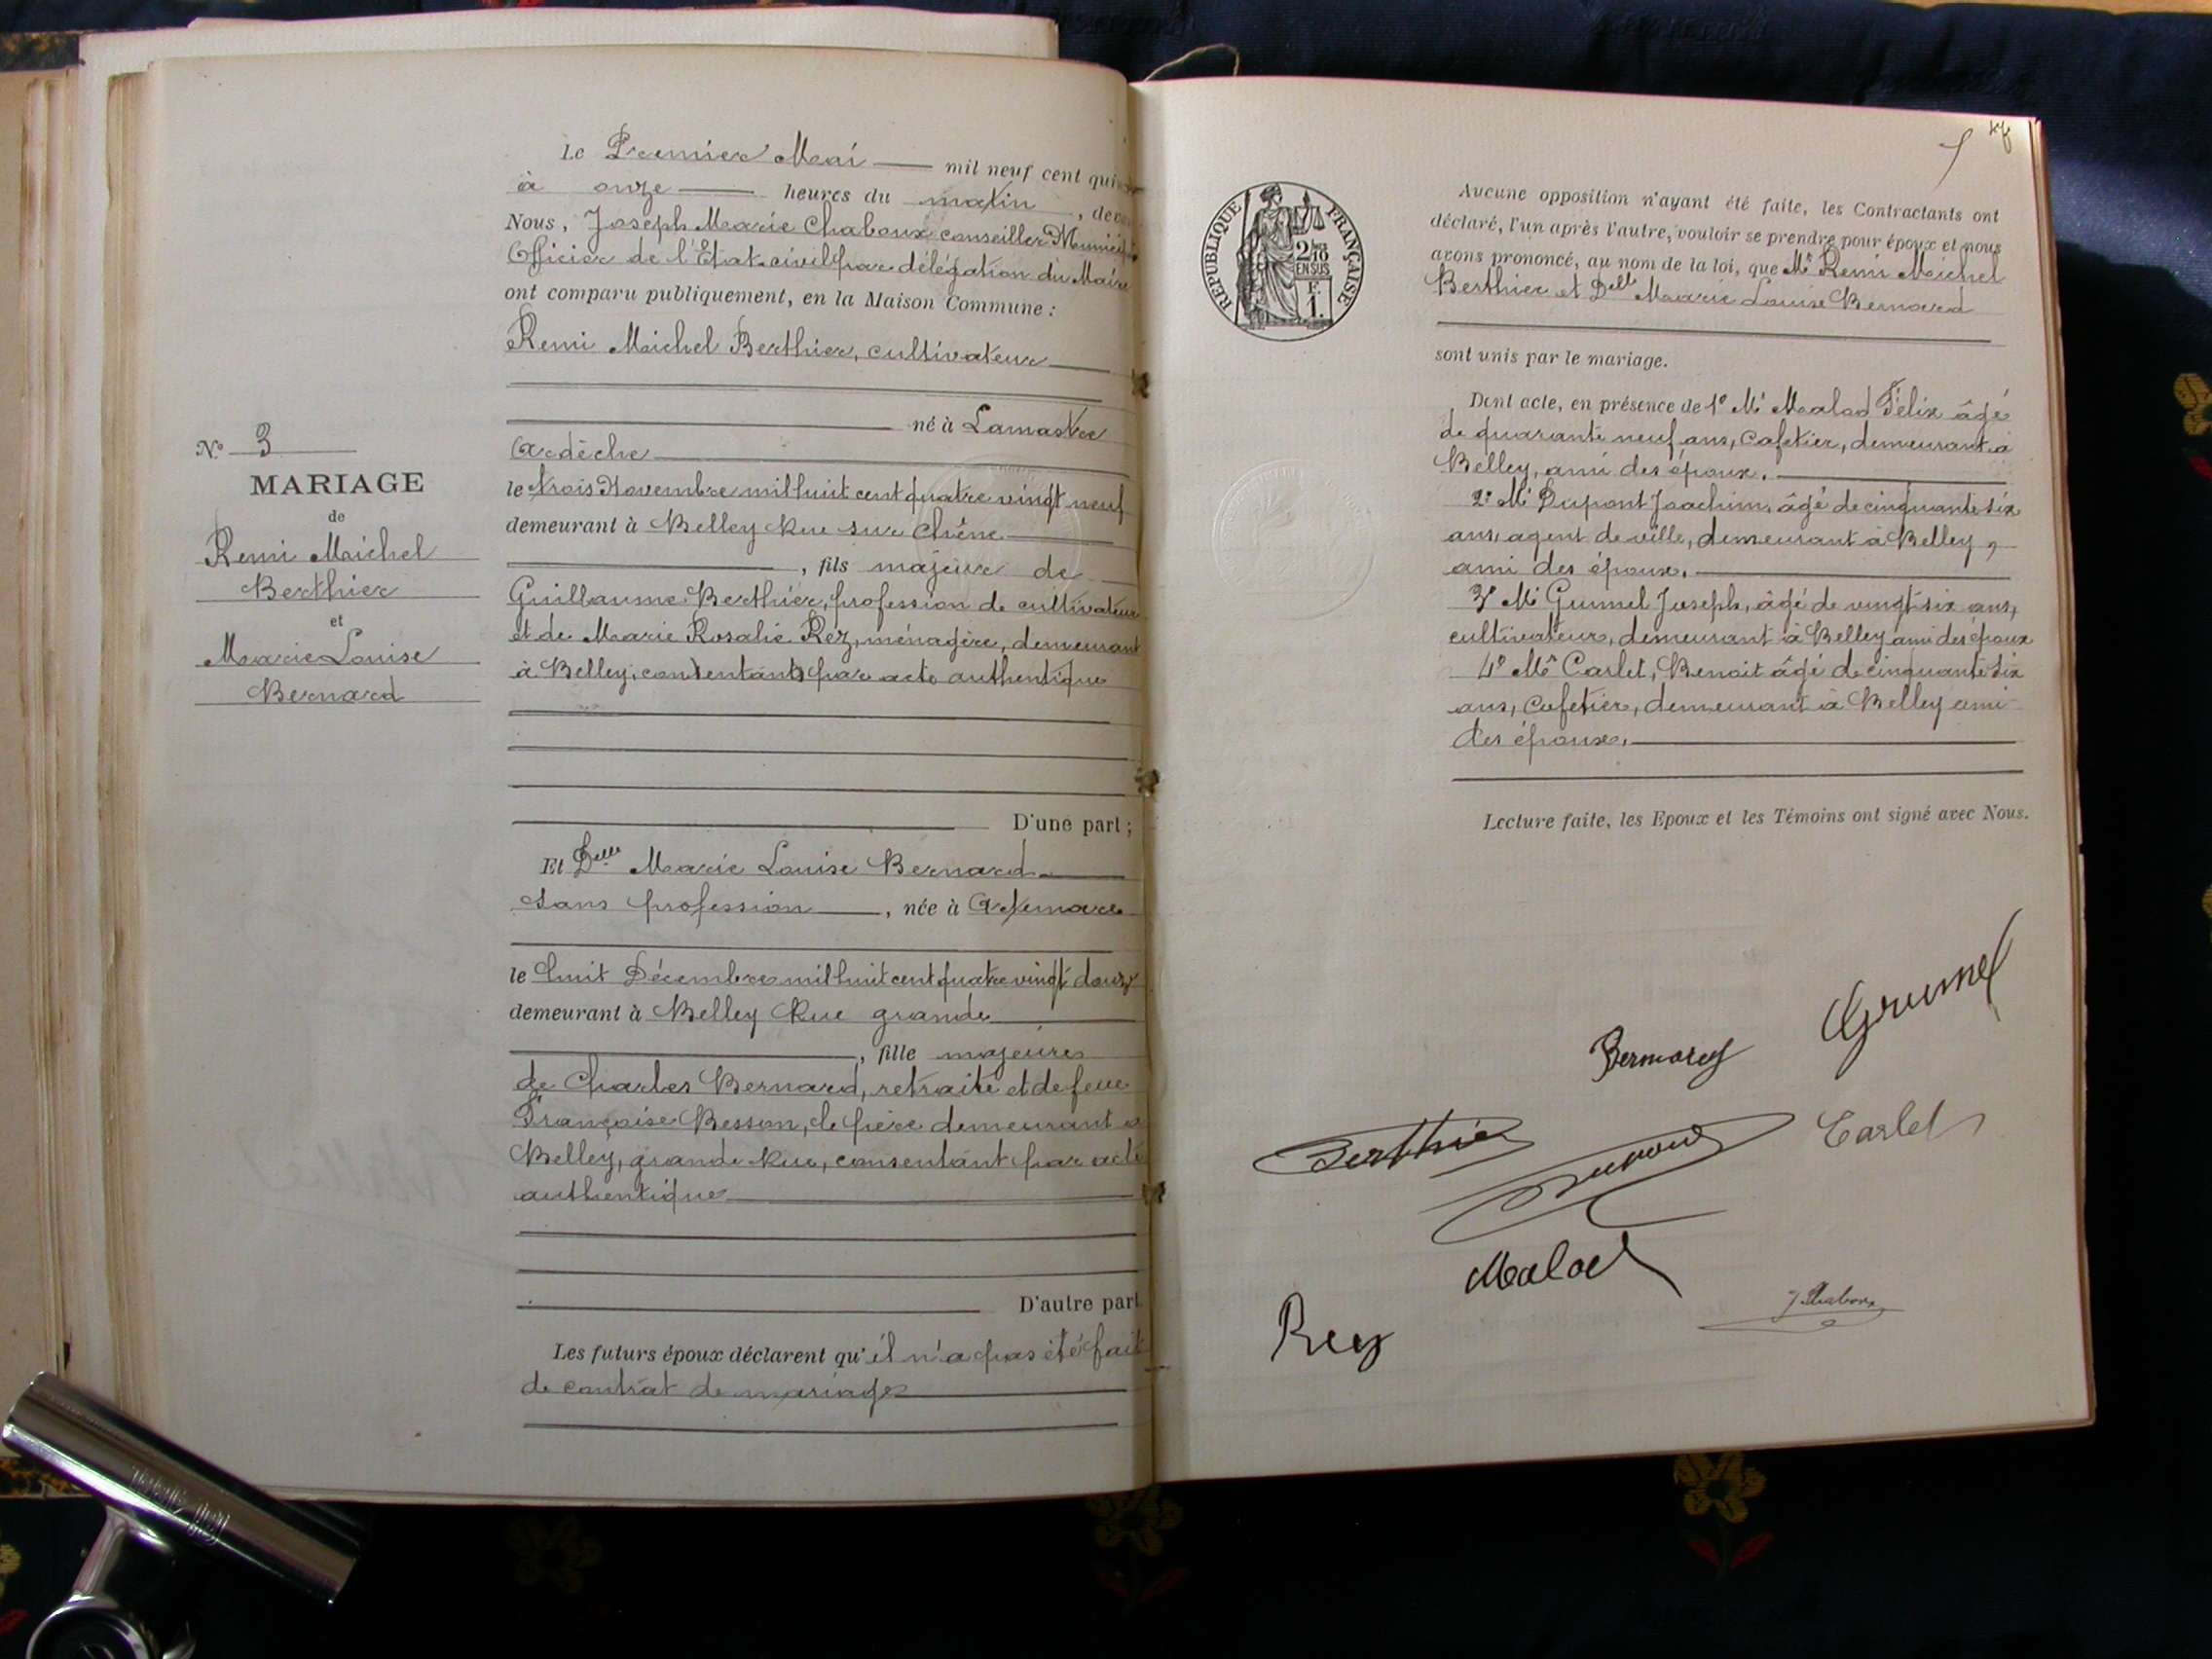 N° 3
MARIAGE
de
Remi Michel
Berthier
et
Marie Louise
Bernard
Le Premier Mai mil neuf cent
à onze heures du matin,
Nous, Joseph Marie Chaboux conseiller
Officier de l'Etat civil par délégation du Maire
ont comparu publiquement, en la Maison Commune :
Remi Michel Berthier, cultivateur
né à Lamastre
Ardèche
le trois Novembre mil huit cent quatre vingt neuf
demeurant à Belley Rue sur Chêne
, fils majeur de
Guillaume Berthier, profession de cultivateur
et de Marie Rosalie Rez, ménagère, demeurant
à Belley, consentants par acte authentique
D'une part ;
Et Delle Marie Louise Bernard
sans profession, née à Artemare
le huit Décembre mil huit cent quatre vingt douze
demeurant à Belley Rue grande
, fille majeure
de Charles Bernard, retraité et de feue
Françoise Besson, le père demeurant à
Belley, grande Rue, consentant par acte
authentique
D'autre part
Les futurs époux déclarent qu'il n'a pas été fait
de contrat de mariage
REPUBLIQUE FRANÇAISE
2/10
EN SUS
F.
1.
Aucune opposition n'ayant été faite, les Contractants ont
déclaré, l'un après l'autre, vouloir se prendre pour époux et nous
avons prononcé, au nom de la loi, que Mr Remi Michel
Berthier et Delle Marie Louise Bernard
sont unis par le mariage.
Dont acte, en présence de 1° Mr Malod Félix âgé
de quarante neuf ans, Cafetier, demeurant à
Belley, ami des époux.
2° Mr Dupont Joachim, âgé de cinquante six
ans, agent de ville, demeurant à Belley,
ami des époux.
3° Mr Grumel Joseph, âgé de vingt six ans,
cultivateur, demeurant à Belley ami des époux
4° Mr Carlet, Benoit âgé de cinquante six
ans, Cafetier, demeurant à Belley ami
des époux.
Lecture faite, les Epoux et les Témoins ont signé avec Nous.
Grumel
Bernard
Berthier
Dupont
Carlet
Malod
J Chaboux
Rey